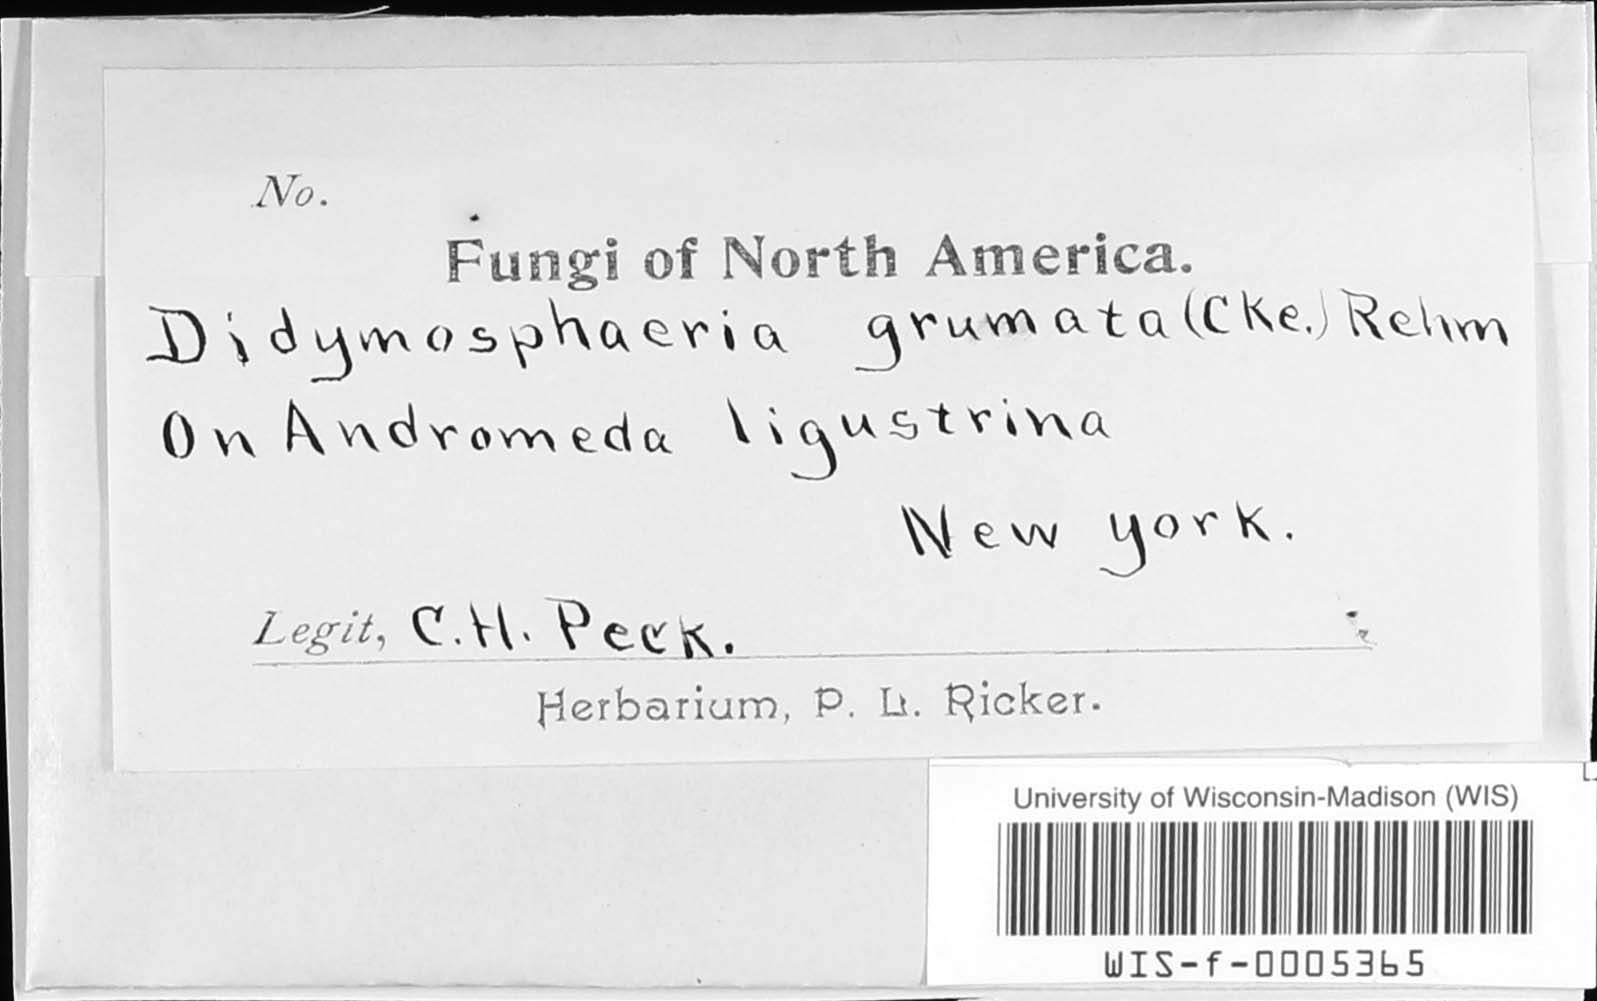 No.
Fungi of North America.
Didymosphaeria grumata (Cke.) Rehm
On Andromeda ligustrina
New york.
Legit, C.H. Peck.
Herbarium, P. L. Ricker.
University of Wisconsin-Madison (WIS)
WIS-f-0005365